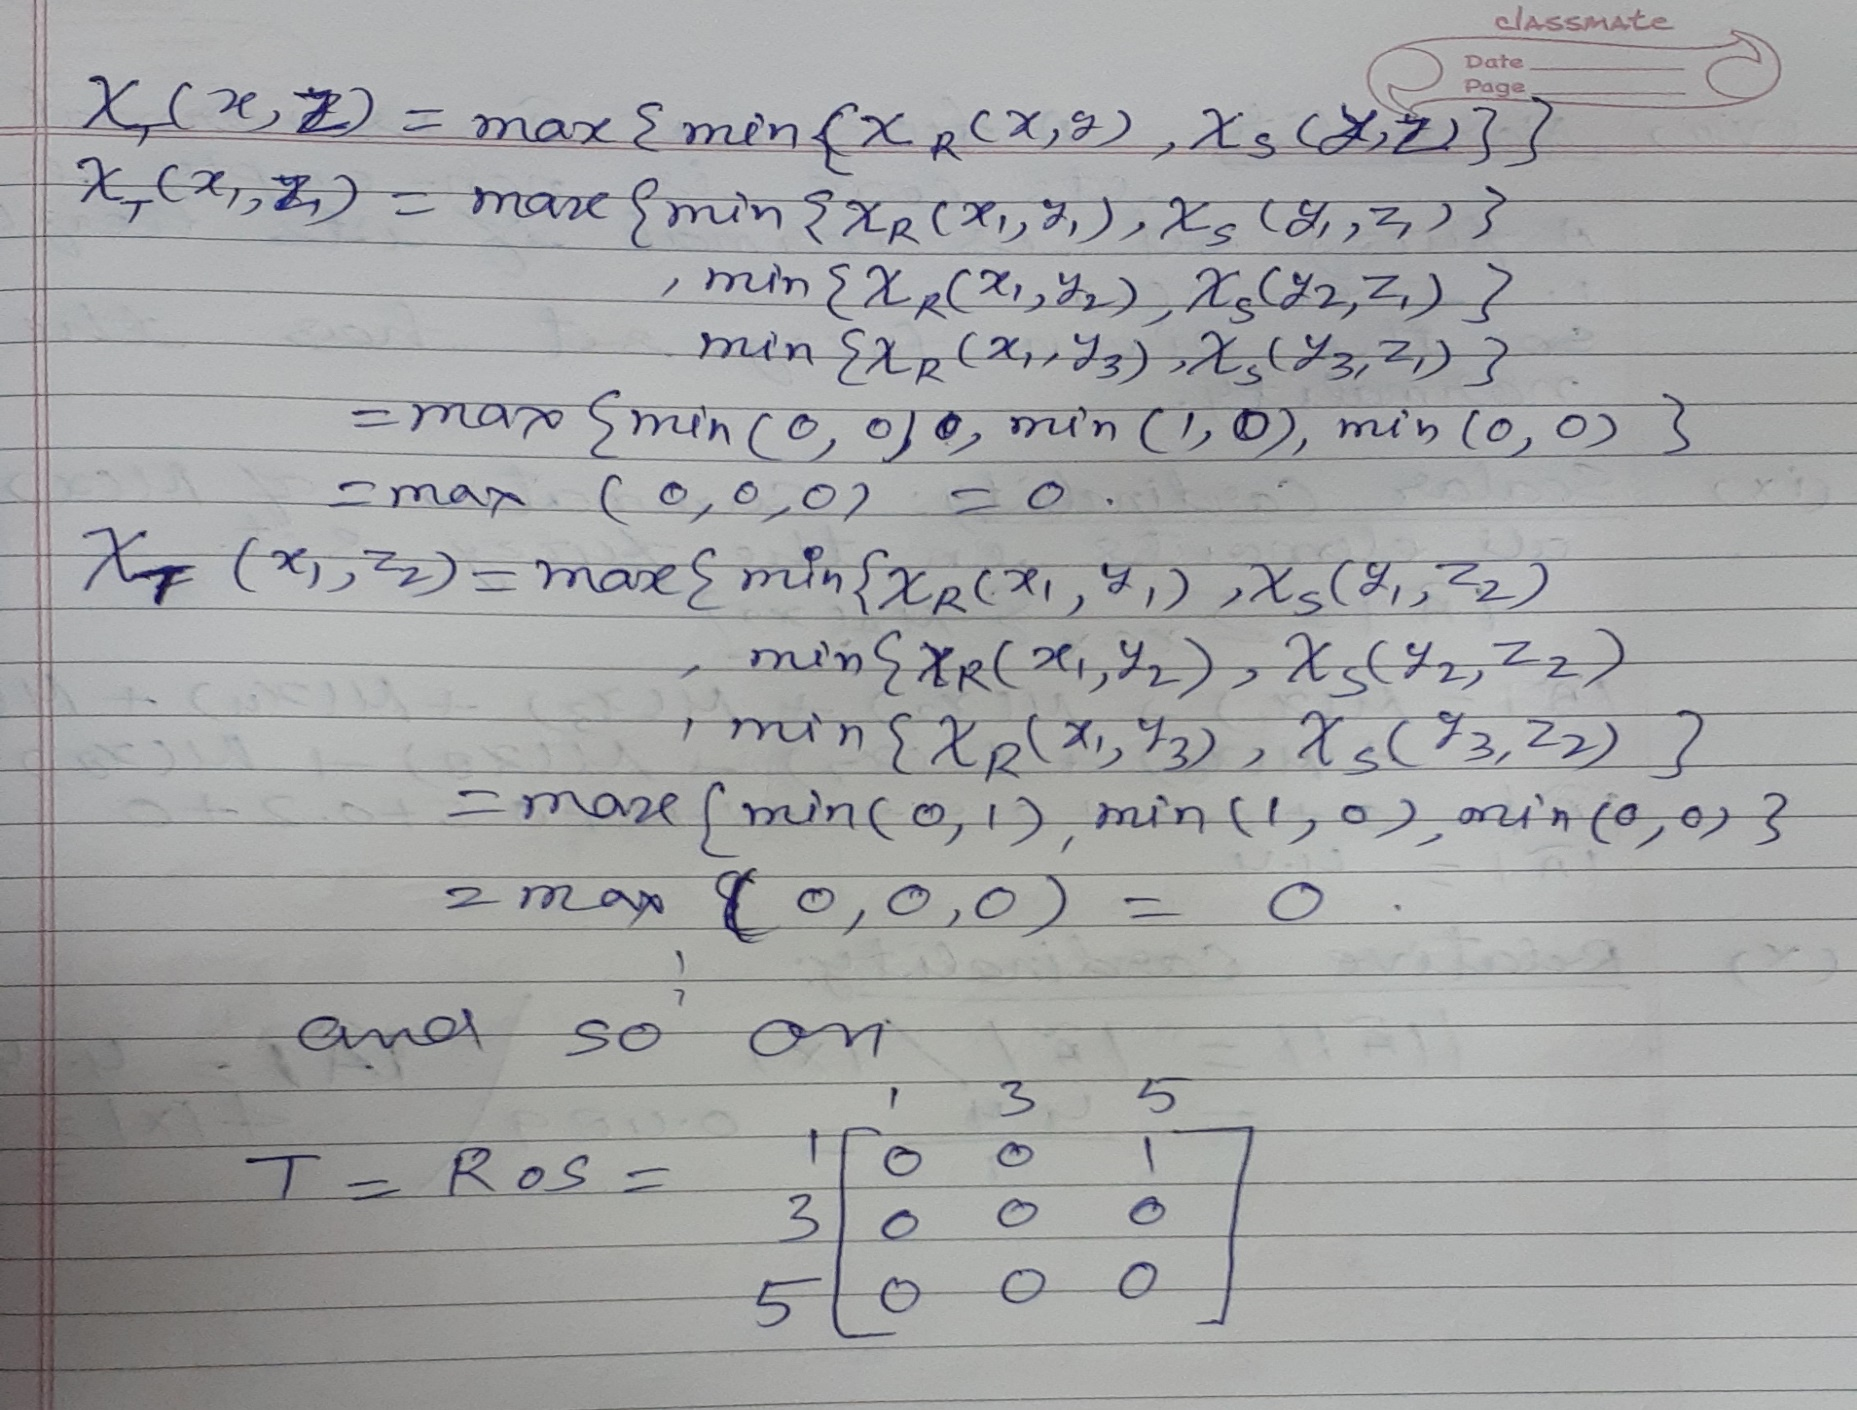 classmate
Date
Page
χ_T(x,z) = max{min{χ_R(x,y), χ_S(y,z)}}
χ_T(x₁,z₁) = max{min{χ_R(x₁,y₁), χ_S(y₁,z₁)}
, min{χ_R(x₁,y₂), χ_S(y₂,z₁)}
min{χ_R(x₁,y₃), χ_S(y₃,z₁)}
= max{min(0,0), min(1,0), min(0,0)}
= max (0,0,0) = 0.
χ_T (x₁,z₂) = max{min{χ_R(x₁,y₁), χ_S(y₁,z₂)
, min{χ_R(x₁,y₂), χ_S(y₂,z₂)
, min{χ_R(x₁,y₃), χ_S(y₃,z₂)}
= max{min(0,1), min(1,0), min(0,0)}
= max (0,0,0) = 0.
and so on
1 3 5
T = RoS = 1 [0 0 1
3 0 0 0
5 0 0 0]